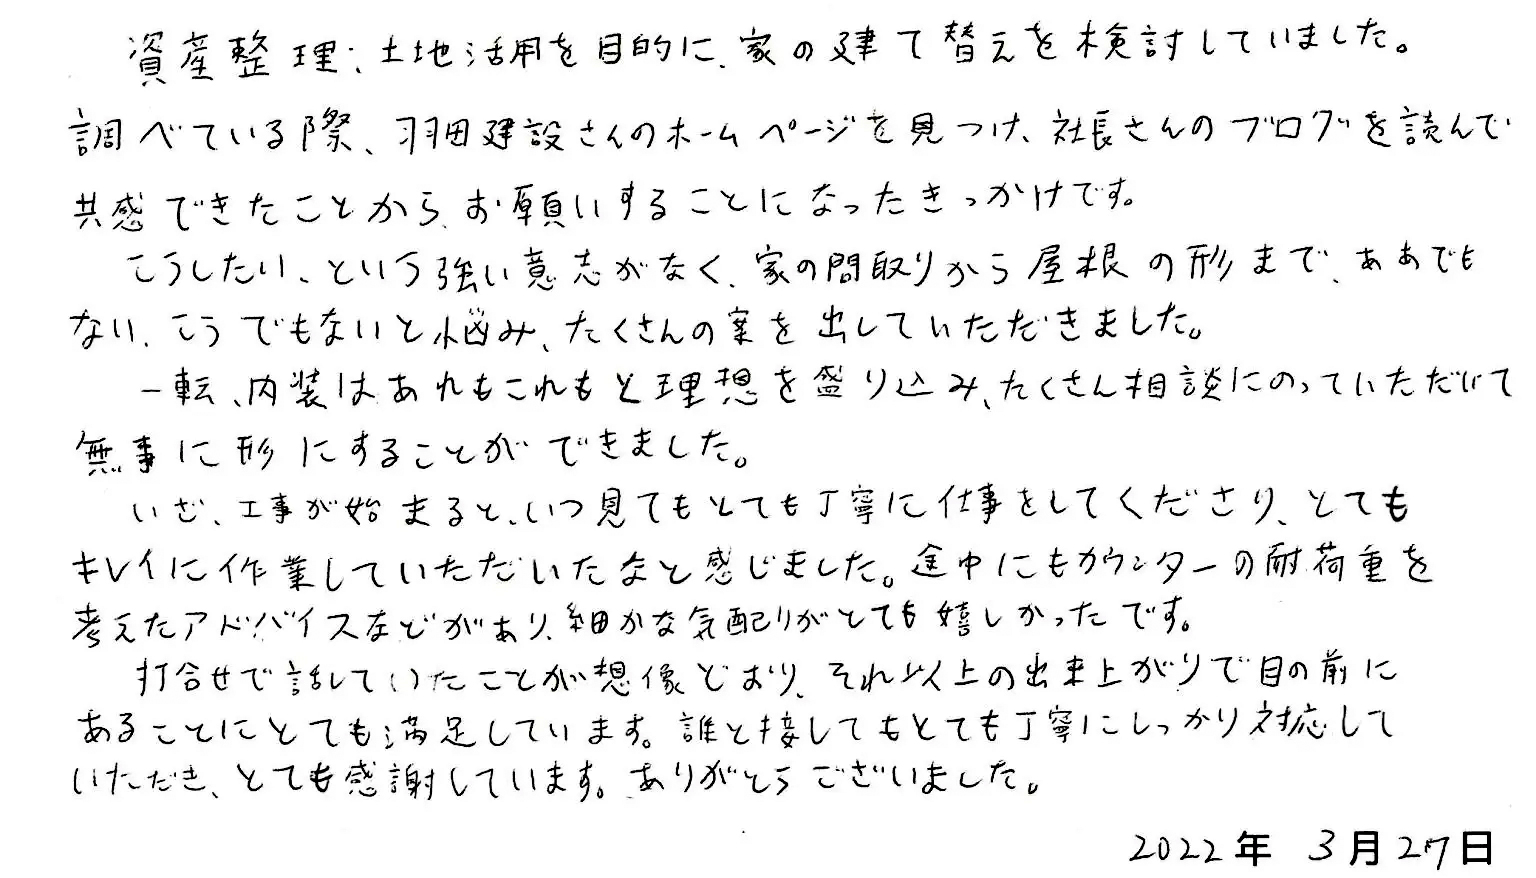 資産整理、土地活用を目的に、家の建て替えを検討していました。
調べている際、羽田建設さんのホームページを見つけ、社長さんのブログを読んで
共感できたことから、お願いすることになったきっかけです。
こうしたい、という強い意志がなく、家の間取りから屋根の形まで、ああでも
ない、こうでもないと悩み、たくさんの案を出していただきました。
一転、内装はあれもこれもと理想を盛り込み、たくさん相談にのっていただいて
無事に形にすることができました。
いざ、工事が始まると、いつ見てもとても丁寧に仕事をしてくださり、とても
キレイに作業していただいたなと感じました。途中にもカウンターの耐荷重を
考えたアドバイスなどがあり、細かな気配りがとても嬉しかったです。
打合せで話していたことが想像どおり、それ以上の出来上がりで目の前に
あることにとても満足しています。誰と接してもとても丁寧にしっかり対応して
いただき、とても感謝しています。ありがとうございました。
2022年 3月27日